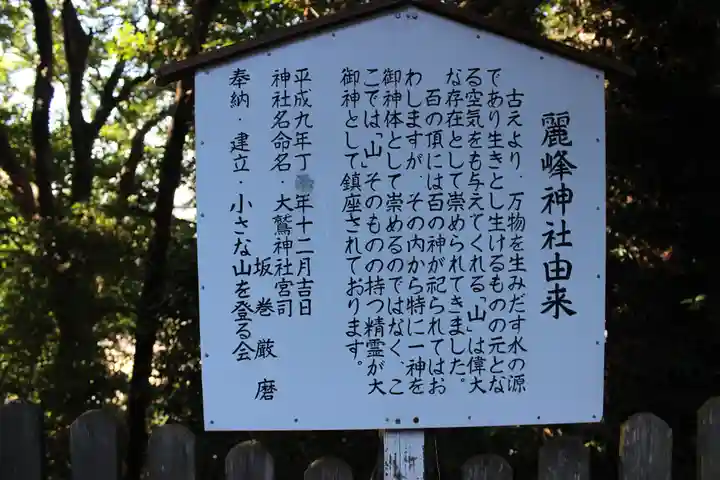 麗峰神社由来
古えより、万物を生みだす水の源
であり生きとし生けるものの元とな
る空気をも与えてくれる「山」は偉大
な存在として崇められてきました。
百の頂には百の神が祀られてはお
わしますが、その内から特に一神を
御神体として崇めるのではなく、こ
こでは「山」そのものの持つ精霊が大
御神として鎮座されております。
平成九年丁 年十二月吉日
神社名命名・大鷲神社宮司
坂巻厳磨
奉納・建立・小さな山を登る会